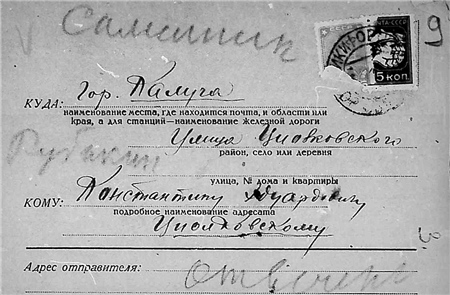 Самитик
9
ПОЧТА СССР
5 КОП.
КУДА: Гор. Калуга
наименование места, где находится почта, и области или
края, а для станций—наименование железной дороги
Улица Циолковского
район, село или деревня
улица, № дома и квартиры
КОМУ: Константину Эдуардовичу
подробное наименование адресата
Циолковскому
Адрес отправителя: